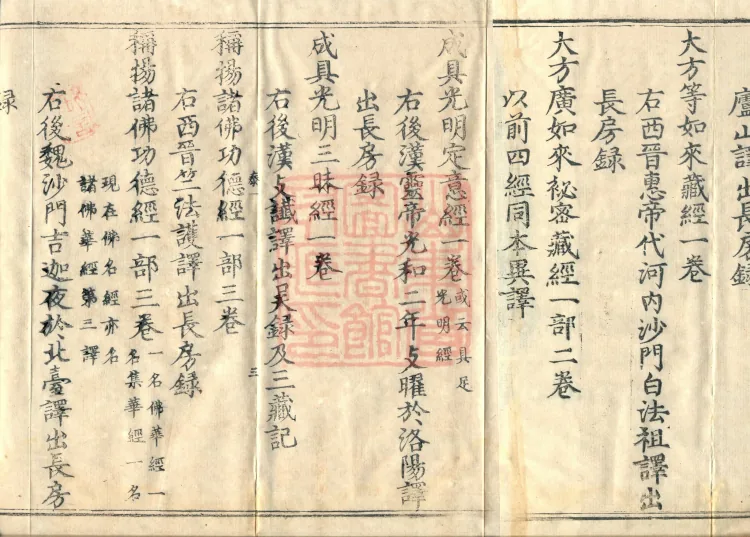 廬山譯出長房録
大方等如來藏經一卷
右西晉惠帝代河内沙門白法祖譯出
長房録
大方廣如來祕密藏經一部二卷
以前四經同本異譯
成具光明定意經一卷
或云具足
光明經
右後漢靈帝光和二年支曜於洛陽譯
出長房録
成具光明三昧經一卷
右後漢支讖譯出吴録及三藏記
三
稱揚諸佛功德經一部三卷
右西晉竺法護譯出長房録
稱揚諸佛功德經一部三卷
一名佛華經一
名集華經一名
現在佛名經亦名
諸佛華經第三譯
右後魏沙門吉迦夜於北臺譯出長房
録